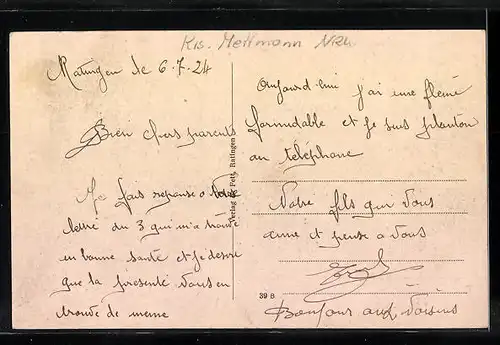 Krs. Mettmann NRW.
Ratingen le 6.7.24
Bien chers parents
Je fais reponse a votre
lettre du 3 qui m'a trouvé
en bonne santé et je desire
que la presente vous en
trouve de meme
Aujourd'hui j'ai une flème
formidable et je suis planton
au téléphone
Votre fils qui vous
aime et pense a vous
Bonjour aux voisins
Verlag Fett, Ratingen
39 B